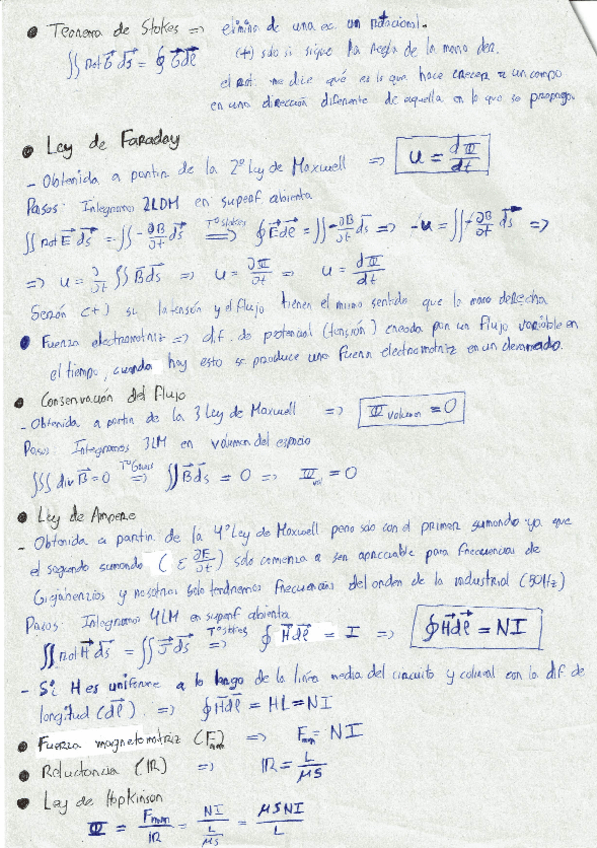 • Teorema de Stokes => elimina de una ec. un rotacional.
∬ rot G⃗ ds⃗ = ∮ G⃗ dl⃗ (+) sólo si sigue la regla de la mano der.
el rot. me dice qué es lo que hace crecer a un campo
en una dirección diferente de aquella en la que se propaga.
• Ley de Faraday
- Obtenida a partir de la 2º Ley de Maxwell => u = dΦ/dt
Pasos: Integramos 2LDM en superf abierta
∬ rot E⃗ ds⃗ = -∬ -∂B/∂t ds⃗ =Tº Stokes=> ∮ E⃗ dl⃗ = ∬ -∂B/∂t ds⃗ => -u = ∬ -∂B/∂t ds⃗ =>
=> u = ∂/∂t ∬ B⃗ ds⃗ => u = ∂Φ/∂t => u = dΦ/dt
Serán (+) si la tensión y el flujo tienen el mismo sentido que la mano derecha
• Fuerza electromotriz => dif. de potencial (tensión) creada por un flujo variable en
el tiempo, cuando hay esto se produce una fuerza electromotriz en un devanado.
• Conservación del flujo
- Obtenida a partir de la 3 Ley de Maxwell => Φ volumen = 0
Pasos: Integramos 3LM en volumen del espacio
∭ div B⃗ = 0 =Tº Gauss=> ∬ B⃗ ds⃗ = 0 => Φ vol = 0
• Ley de Ampere
- Obtenida a partir de la 4º Ley de Maxwell pero sólo con el primer sumando ya que
el segundo sumando ( ε ∂E/∂t ) sólo comienza a ser apreciable para frecuencias de
Gigahenzios y nosotros solo tendremos frecuencias del orden de la industrial (50Hz)
Pasos: Integramos 4LM en superf abierta
∬ rot H⃗ ds⃗ = ∬ J⃗ ds⃗ =Tº Stokes=> ∮ H⃗ dl⃗ = I => ∮ H⃗ dl⃗ = NI
- Si H es uniforme a lo largo de la línea media del circuito y colineal con la dif. de
longitud (dl⃗). => ∮ H⃗ dl⃗ = HL = NI
• Fuerza magnetomotriz (Fmm) => Fmm = NI
• Reluctancia (IR) => IR = L/μS
• Ley de Hopkinson
Φ = Fmm/IR = NI/(L/μS) = μSNI/L